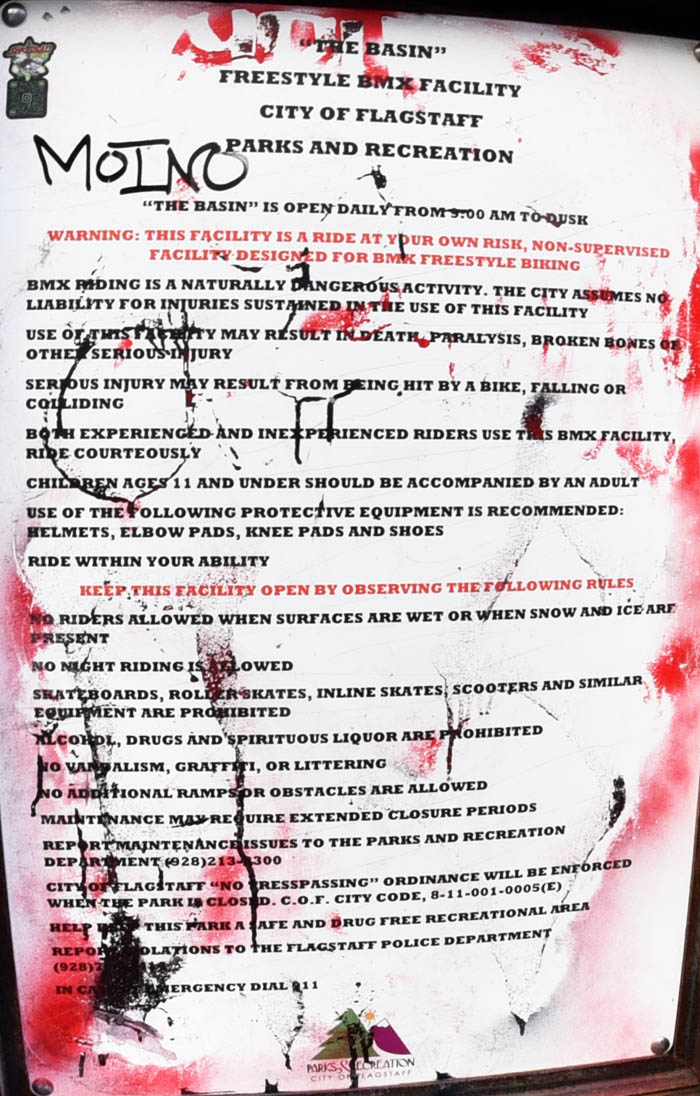 “THE BASIN”
FREESTYLE BMX FACILITY
CITY OF FLAGSTAFF
PARKS AND RECREATION
MOINO
“THE BASIN” IS OPEN DAILY FROM 9:00 AM TO DUSK
WARNING: THIS FACILITY IS A RIDE AT YOUR OWN RISK, NON-SUPERVISED
FACILITY DESIGNED FOR BMX FREESTYLE BIKING
BMX RIDING IS A NATURALLY DANGEROUS ACTIVITY. THE CITY ASSUMES NO
LIABILITY FOR INJURIES SUSTAINED IN THE USE OF THIS FACILITY
USE OF THIS FACILITY MAY RESULT IN DEATH, PARALYSIS, BROKEN BONES OR
OTHER SERIOUS INJURY
SERIOUS INJURY MAY RESULT FROM BEING HIT BY A BIKE, FALLING OR
COLLIDING
BOTH EXPERIENCED AND INEXPERIENCED RIDERS USE THIS BMX FACILITY,
RIDE COURTEOUSLY
CHILDREN AGES 11 AND UNDER SHOULD BE ACCOMPANIED BY AN ADULT
USE OF THE FOLLOWING PROTECTIVE EQUIPMENT IS RECOMMENDED:
HELMETS, ELBOW PADS, KNEE PADS AND SHOES
RIDE WITHIN YOUR ABILITY
KEEP THIS FACILITY OPEN BY OBSERVING THE FOLLOWING RULES
NO RIDERS ALLOWED WHEN SURFACES ARE WET OR WHEN SNOW AND ICE ARE
PRESENT
NO NIGHT RIDING IS ALLOWED
SKATEBOARDS, ROLLER SKATES, INLINE SKATES, SCOOTERS AND SIMILAR
EQUIPMENT ARE PROHIBITED
ALCOHOL, DRUGS AND SPIRITUOUS LIQUOR ARE PROHIBITED
NO VANDALISM, GRAFFITI, OR LITTERING
NO ADDITIONAL RAMPS OR OBSTACLES ARE ALLOWED
MAINTENANCE MAY REQUIRE EXTENDED CLOSURE PERIODS
REPORT MAINTENANCE ISSUES TO THE PARKS AND RECREATION
DEPARTMENT
CITY OF FLAGSTAFF “NO TRESSPASSING” ORDINANCE WILL BE ENFORCED
WHEN THE PARK IS CLOSED. C.O.F. CITY CODE, 8-11-001-0005(E)
HELP KEEP THIS PARK A SAFE AND DRUG FREE RECREATIONAL AREA
REPORT VIOLATIONS TO THE FLAGSTAFF POLICE DEPARTMENT
IN CASE OF EMERGENCY DIAL 911
PARKS & RECREATION
CITY OF FLAGSTAFF